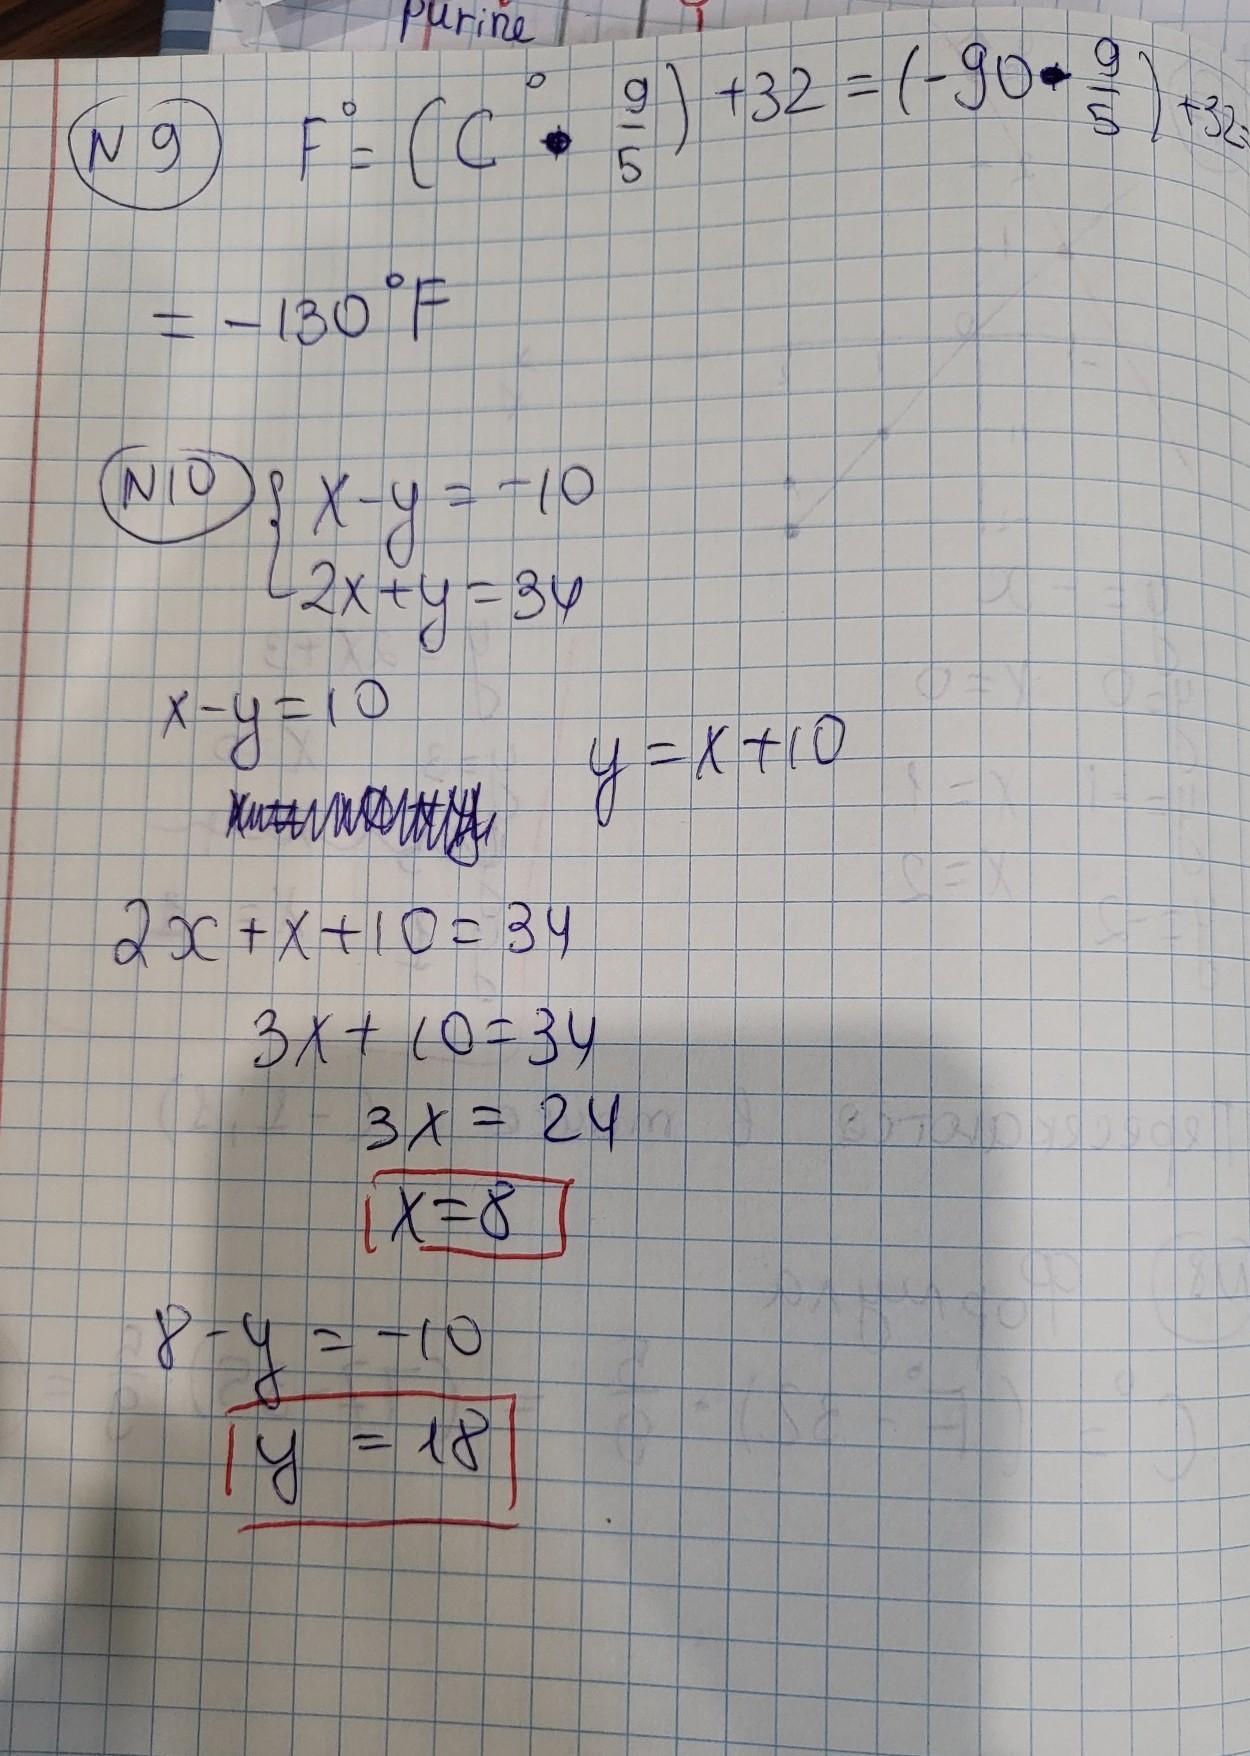 purine
N9 F° = (C° • 9/5) + 32 = (-90 • 9/5) + 32 =
= -130°F
N10 { x - y = -10
2x + y = 34
x - y = 10
y = x + 10
2x + x + 10 = 34
3x + 10 = 34
3x = 24
x = 8
8 - y = -10
y = 18